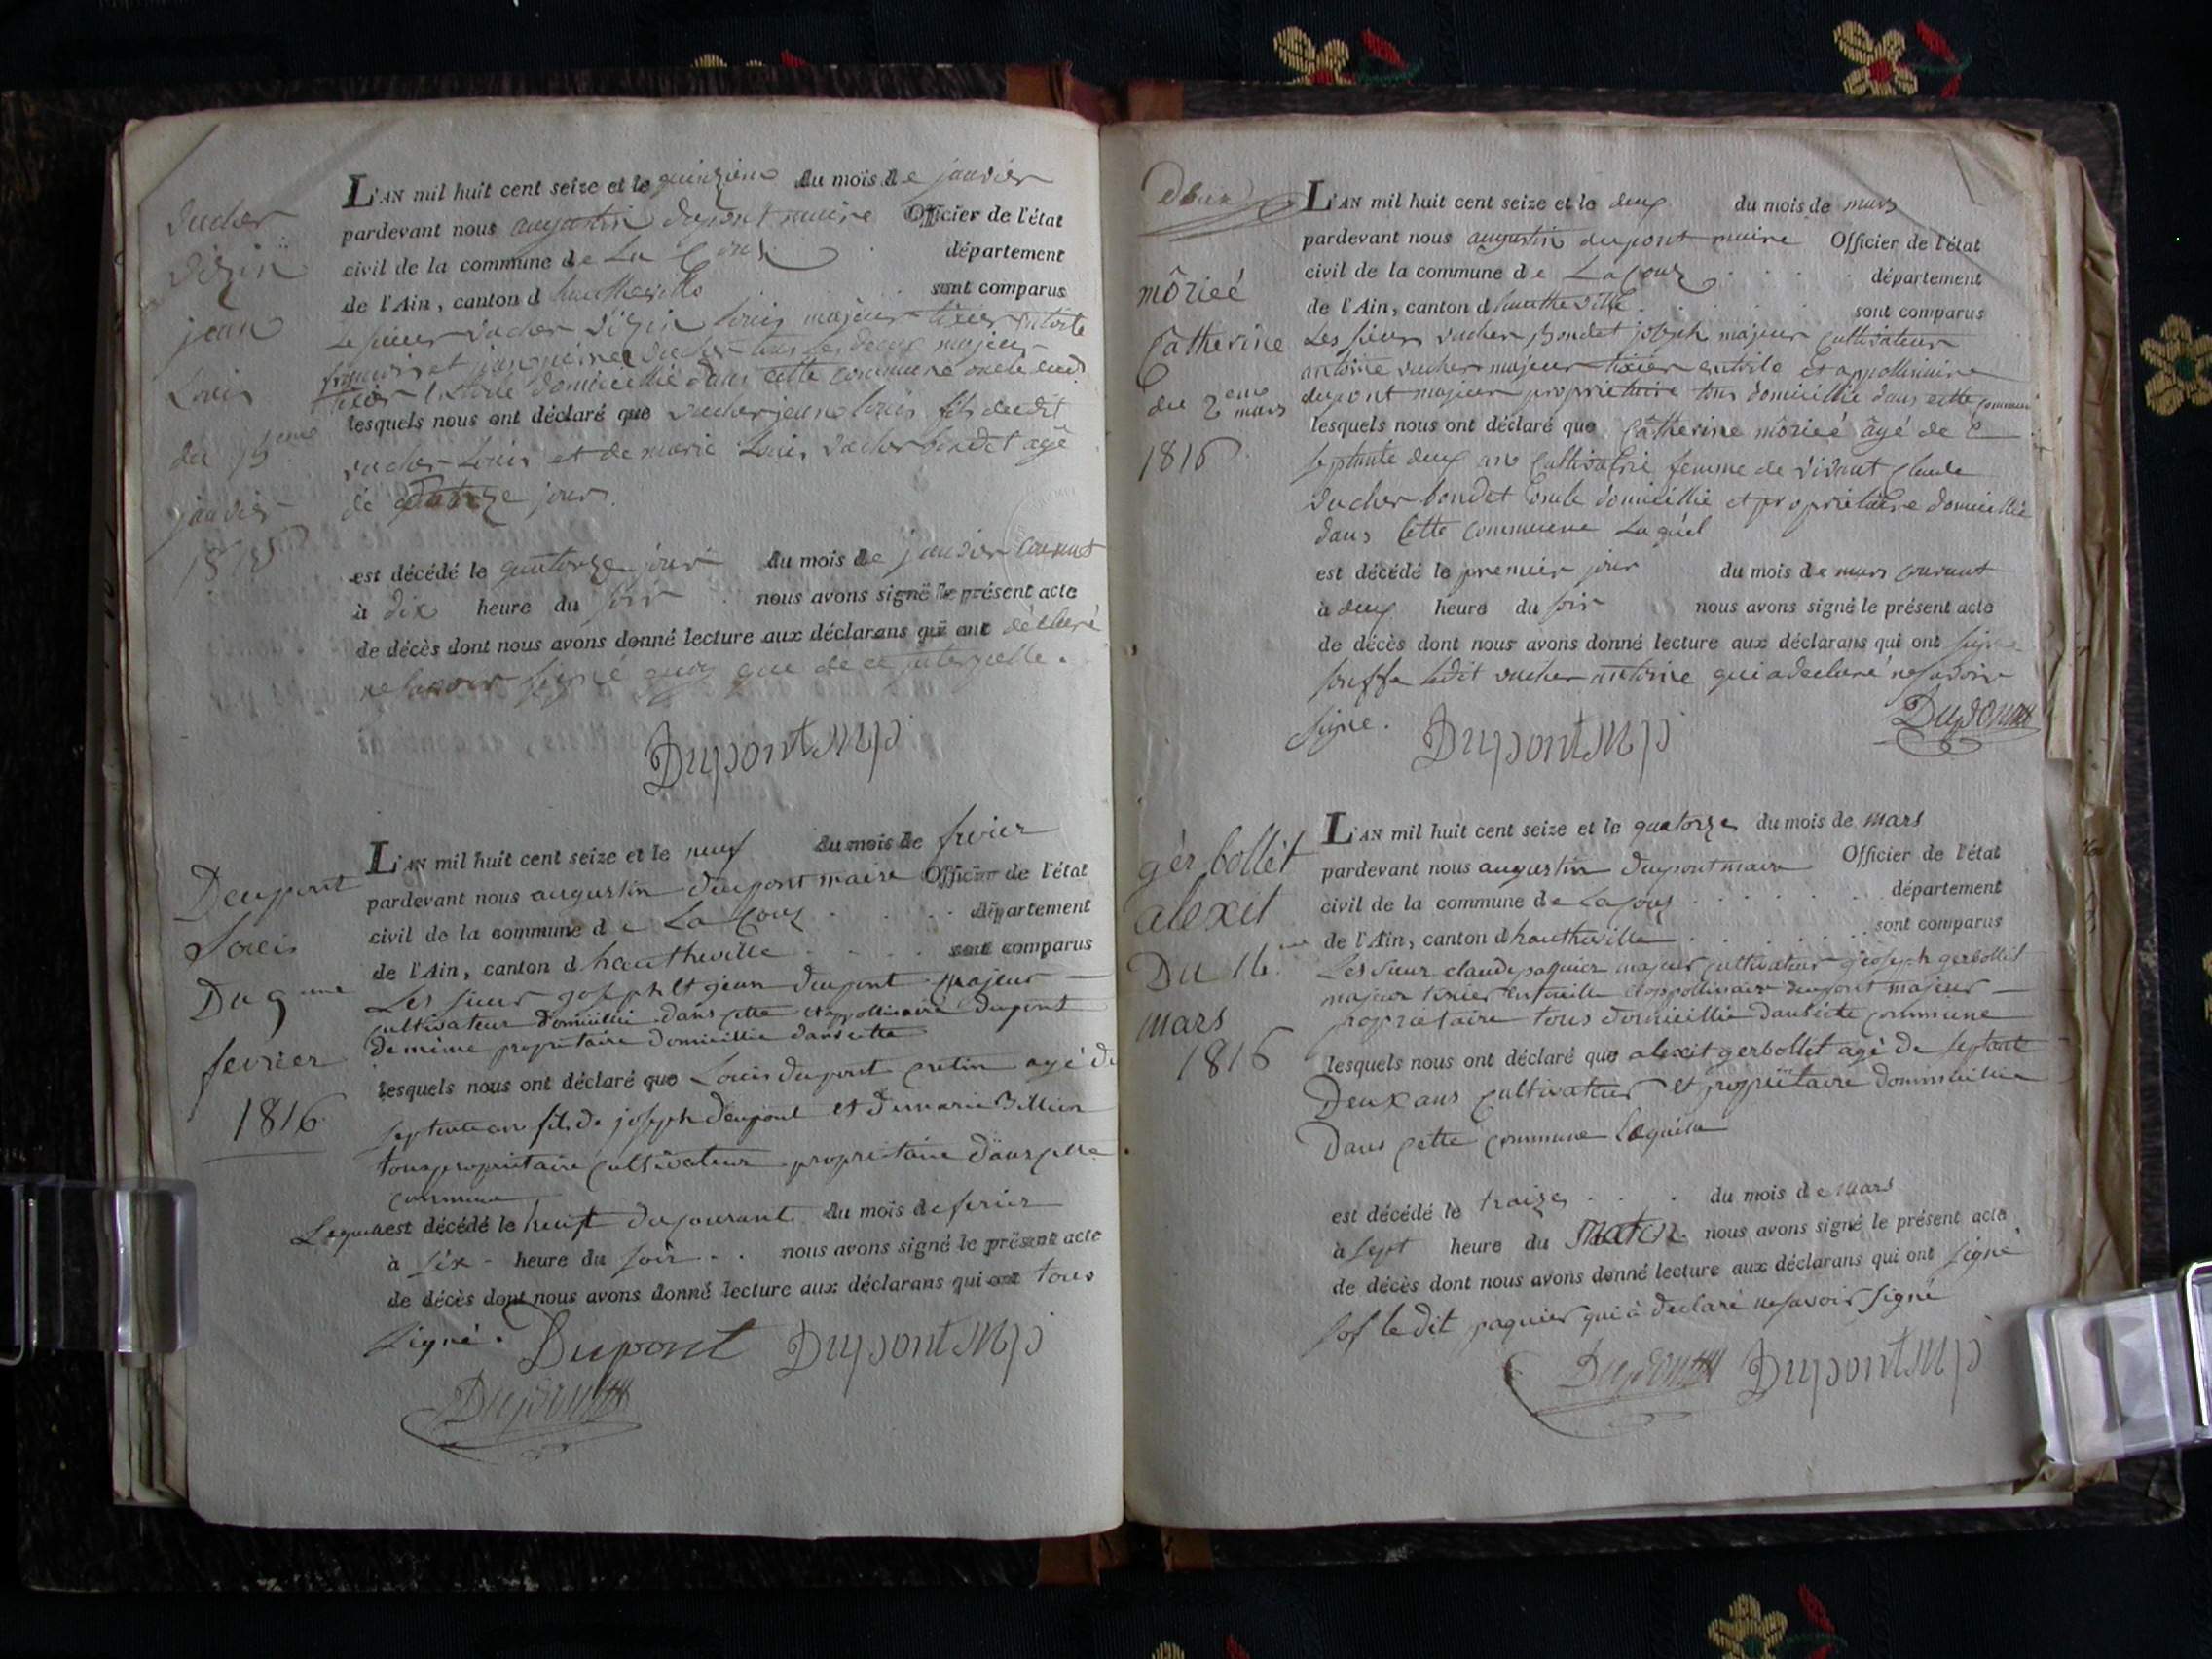 Vucher
Vizin
jean
Louis
du 15eme
janvier
L'AN mil huit cent seize et le quinzième du mois de janvier
pardevant nous augustin dupont maire Officier de l'état
civil de la commune de La Coux département
de l'Ain, canton d'hautheville sont comparus
Le sieur vucher Vizin Louis majeur tixier en toile
domicillié dans cette commune
lesquels nous ont déclaré que vucher jean Louis fils dudit
vucher Louis et de marie Louis vucher bondet agé
de quatorze jours.
est décédé le quatorze jour du mois de janvier courant
à dix heure du soir nous avons signé le présent acte
de décès dont nous avons donné lecture aux déclarans qui ont déclaré
ne savoir signé quoy que de ce interpelle.
Dupont M
Deupont
Louis
Du 9eme
fevrier
1816
L'AN mil huit cent seize et le neuf du mois de fevrier
pardevant nous augustin dupont maire Officier de l'état
civil de la commune de La Coux département
de l'Ain, canton d hautheville sont comparus
Les sieur joseph et jean dupont majeur
cultivateur domicillié dans cette et appollinaire Dupont
de même propritaire domicillié dans cette
lesquels nous ont déclaré que Louis dupont cretin agé de
septente an fils de joseph deupont et de marie Billion
tous propriétaire cultivateur propriétaire dans cette
commune
Lequel est décédé le neuf du courant du mois de ferier
à six heure du soir nous avons signé le présent acte
de décès dont nous avons donné lecture aux déclarans qui ont tous
signé.
Dupont Dupont M
Dupont
Deux
môrieé
Catherine
du 2eme
mars
1816
L'AN mil huit cent seize et le deux du mois de mars
pardevant nous augustin dupont maire Officier de l'état
civil de la commune de La Coux département
de l'Ain, canton d hautheville sont comparus
Les sieurs vucher Bondet joseph majeur Cultivateur
antoine vucher majeur tixier en toile et appollinaire
dupont majeur propriétaire tous domicillié dans cette commune
lesquels nous ont déclaré que Catherine môrieé âgé de
septante deux ans Cultivatrice femme de vivant Claude
vucher bondet domicillié et propriétaire domicillié
dans Cette Commune Laquel
est décédé le premier jour du mois de mars courant
à deux heure du soir nous avons signé le présent acte
de décès dont nous avons donné lecture aux déclarans qui ont signé
souffe ledit vucher antoine qui a declaré ne savoir
signe.
Dupont M Dupont
gèrbollèt
alexit
Du 14
mars
1816
L'AN mil huit cent seize et le quatorze du mois de mars
pardevant nous augustin dupont maire Officier de l'état
civil de la commune de la Coux département
de l'Ain, canton d hautheville sont comparus
Les sieur claude paquier majeur cultivateur joseph gerbollet
majeur tixier en toille et appollinair deupont majeur
propriétaire tous domicillié dans cete commune
lesquels nous ont déclaré que alexit gerbollet agé de septante
Deux ans cultivateur et propriétaire dommicillié
Dans cette commune Lequelle
est décédé le traize du mois de mars
à sept heure du matin nous avons signé le présent acte
de décès dont nous avons donné lecture aux déclarans qui ont signé
sof le dit paquier qui à declaré ne savoir signé
Dupont Dupont M